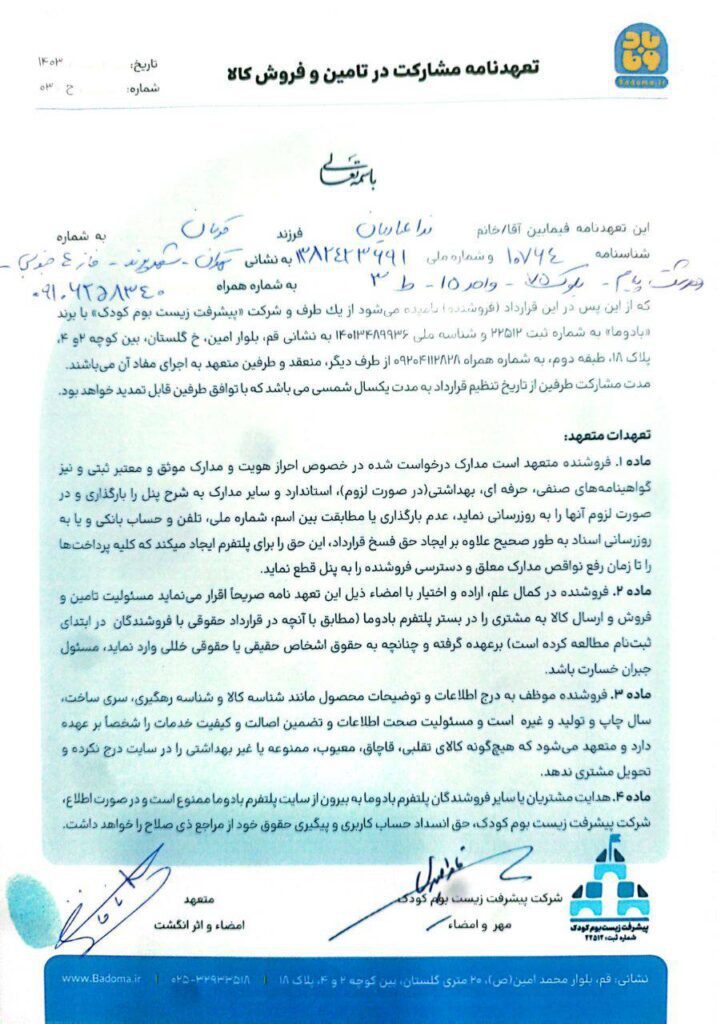 باد
وما
Badoma.ir
تعهدنامه مشارکت در تامین و فروش کالا
تاریخ: ۱۴۰۳
شماره: ح ۰۳
باسمه تعالی
این تعهدنامه فیمابین آقا/خانم ندا عماریان فرزند به شماره
شناسنامه ۱۰۷۶۴ و شماره ملی به نشانی تهران - شهرک پرند - فاز ۵
بلوک ۷۵ - واحد ۱۵ - ط ۳ به شماره همراه
که از این پس در این قرارداد (فروشنده) نامیده می‌شود از یك طرف و شرکت «پیشرفت زیست بوم کودک» با برند
«بادوما» به شماره ثبت ۲۲۵۱۲ و شناسه ملی ۱۴۰۱۳۴۸۹۹۳۶ به نشانی قم، بلوار امین، خ گلستان، بین کوچه ۲و ۴،
پلاک ۱۸، طبقه دوم، به شماره همراه ۰۹۲۰۴۱۱۲۸۲۸ از طرف دیگر، منعقد و طرفین متعهد به اجرای مفاد آن می‌باشند.
مدت مشارکت طرفین از تاریخ تنظیم قرارداد به مدت یکسال شمسی می باشد که با توافق طرفین قابل تمدید خواهد بود.
تعهدات متعهد:
ماده ۱. فروشنده متعهد است مدارک درخواست شده در خصوص احراز هویت و مدارک موثق و معتبر ثبتی و نیز
گواهینامه‌های صنفی، حرفه ای، بهداشتی(در صورت لزوم)، استاندارد و سایر مدارک به شرح پنل را بارگذاری و در
صورت لزوم آنها را به روزرسانی نماید، عدم بارگذاری یا مطابقت بین اسم، شماره ملی، تلفن و حساب بانکی و یا به
روزرسانی اسناد به طور صحیح علاوه بر ایجاد حق فسخ قرارداد، این حق را برای پلتفرم ایجاد میکند که کلیه پرداخت‌ها
را تا زمان رفع نواقص مدارک معلق و دسترسی فروشنده را به پنل قطع نماید.
ماده ۲. فروشنده در کمال علم، اراده و اختیار با امضاء ذیل این تعهد نامه صریحاً اقرار می‌نماید مسئولیت تامین و
فروش و ارسال کالا به مشتری را در بستر پلتفرم بادوما (مطابق با آنچه در قرارداد حقوقی با فروشندگان در ابتدای
ثبت‌نام مطالعه کرده است) برعهده گرفته و چنانچه به حقوق اشخاص حقیقی یا حقوقی خللی وارد نماید، مسئول
جبران خسارت باشد.
ماده ۳. فروشنده موظف به درج اطلاعات و توضیحات محصول مانند شناسه کالا و شناسه رهگیری، سری ساخت،
سال چاپ و تولید و غیره است و مسئولیت صحت اطلاعات و تضمین اصالت و کیفیت خدمات را شخصاً بر عهده
دارد و متعهد می‌شود که هیچ‌گونه کالای تقلبی، قاچاق، معیوب، ممنوعه یا غیر بهداشتی را در سایت درج نکرده و
تحویل مشتری ندهد.
ماده ۴. هدایت مشتریان یا سایر فروشندگان پلتفرم بادوما به بیرون از سایت پلتفرم بادوما ممنوع است و در صورت اطلاع،
شرکت پیشرفت زیست بوم کودک، حق انسداد حساب کاربری و پیگیری حقوق خود از مراجع ذی صلاح را خواهد داشت.
شرکت پیشرفت زیست بوم کودک
مهر و امضاء
متعهد
امضاء و اثر انگشت
پیشرفت زیست بوم کودک
شماره ثبت: ۲۲۵۱۲
نشانی: قم، بلوار محمد امین(ص)، ۲۰ متری گلستان، بین کوچه ۲ و ۴، پلاک ۱۸ | ۰۲۵-۳۲۹۳۳۵۱۸ | www.Badoma.ir